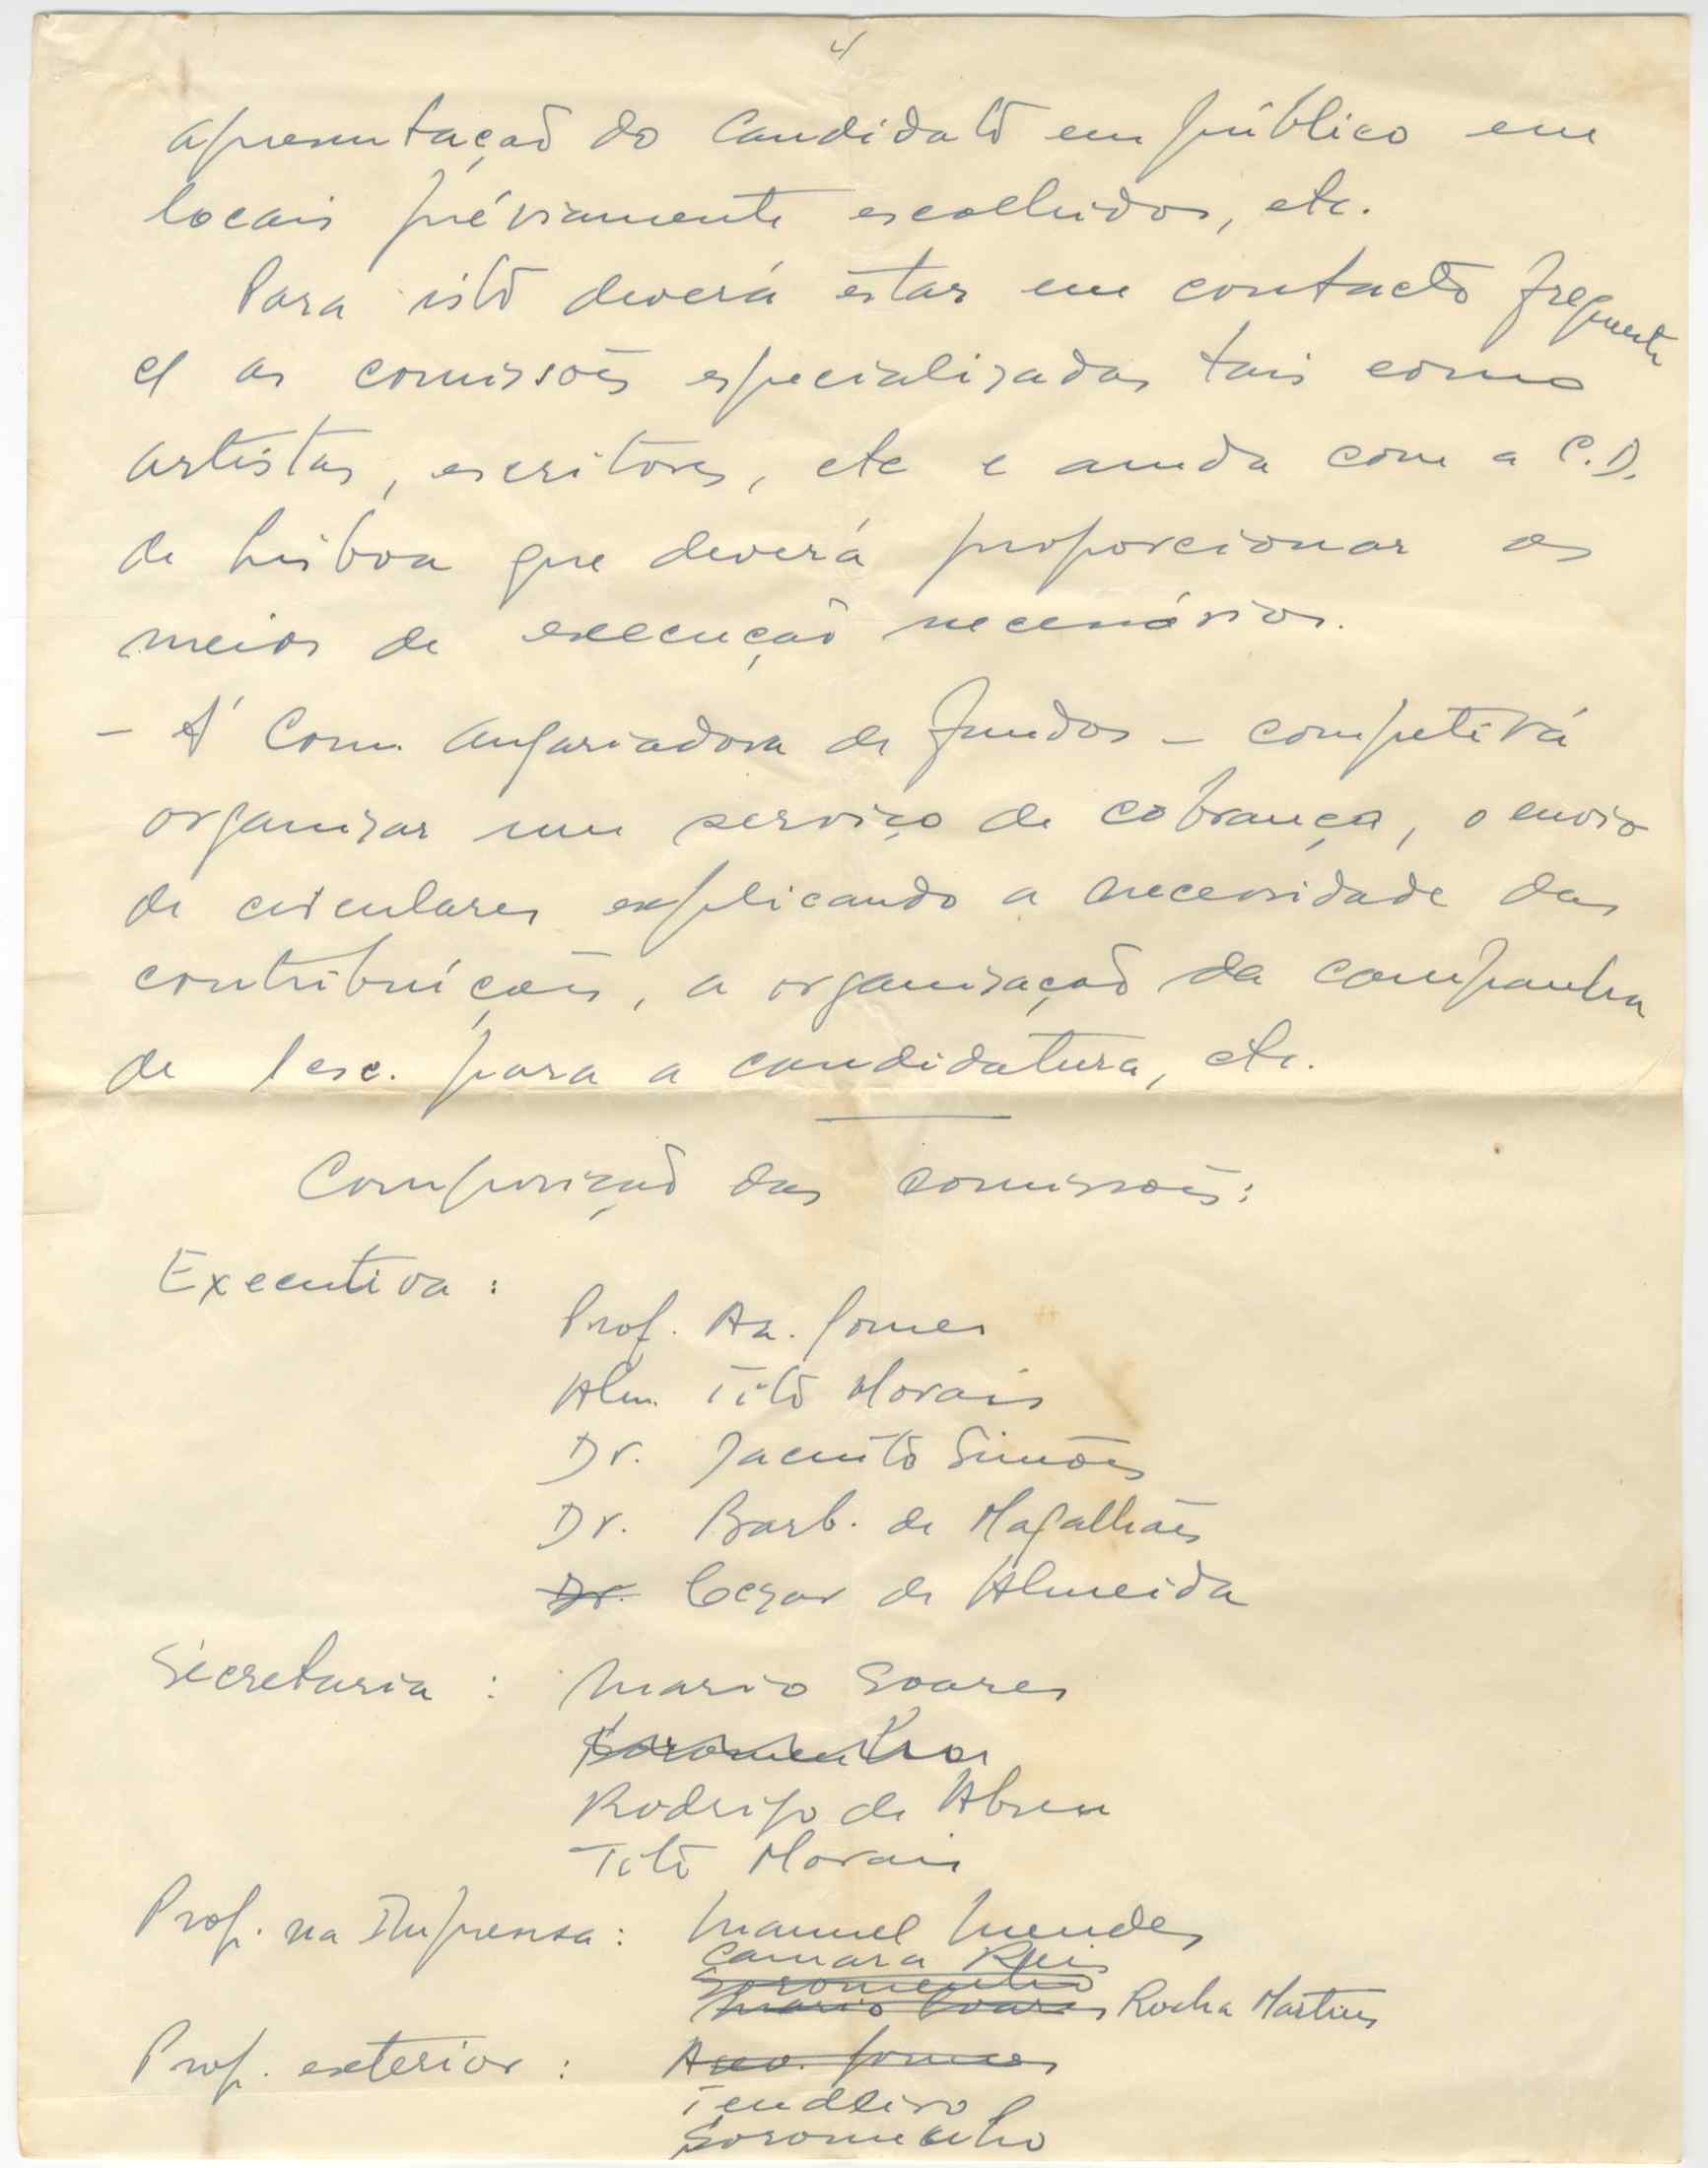 4
apresentação do Candidato em público em
locais préviamente escolhidos, etc.
Para isto deverá estar em contacto frequente
c/ as comissões especializadas tais como
artistas, escritores, etc e ainda com a C.D.
de Lisboa que deverá proporcionar os
meios de execução necessários.
- Á Com. Angariadora de fundos - competirá
organizar um serviço de cobrança, o envio
de circulares explicando a necessidade das
contribuíções, a organização da campanha
de 1 esc. para a candidatura, etc.
Composição das comissões:
Executiva:
Prof. Az. Gomes
Alm. Tito Morais
Dr. Jacinto Simões
Dr. Barb. de Magalhães
Dr. Cezar de Almeida
Secretaria: Mario Soares
Soromenho
Rodrigo de Abreu
Tito Morais
Prop. na Imprensa: Manuel Mendes
Camara Reis
Soromenho
Mario Soares Rocha Martins
Prop. exterior: Azev. Gomes
Tendeiro
Soromenho